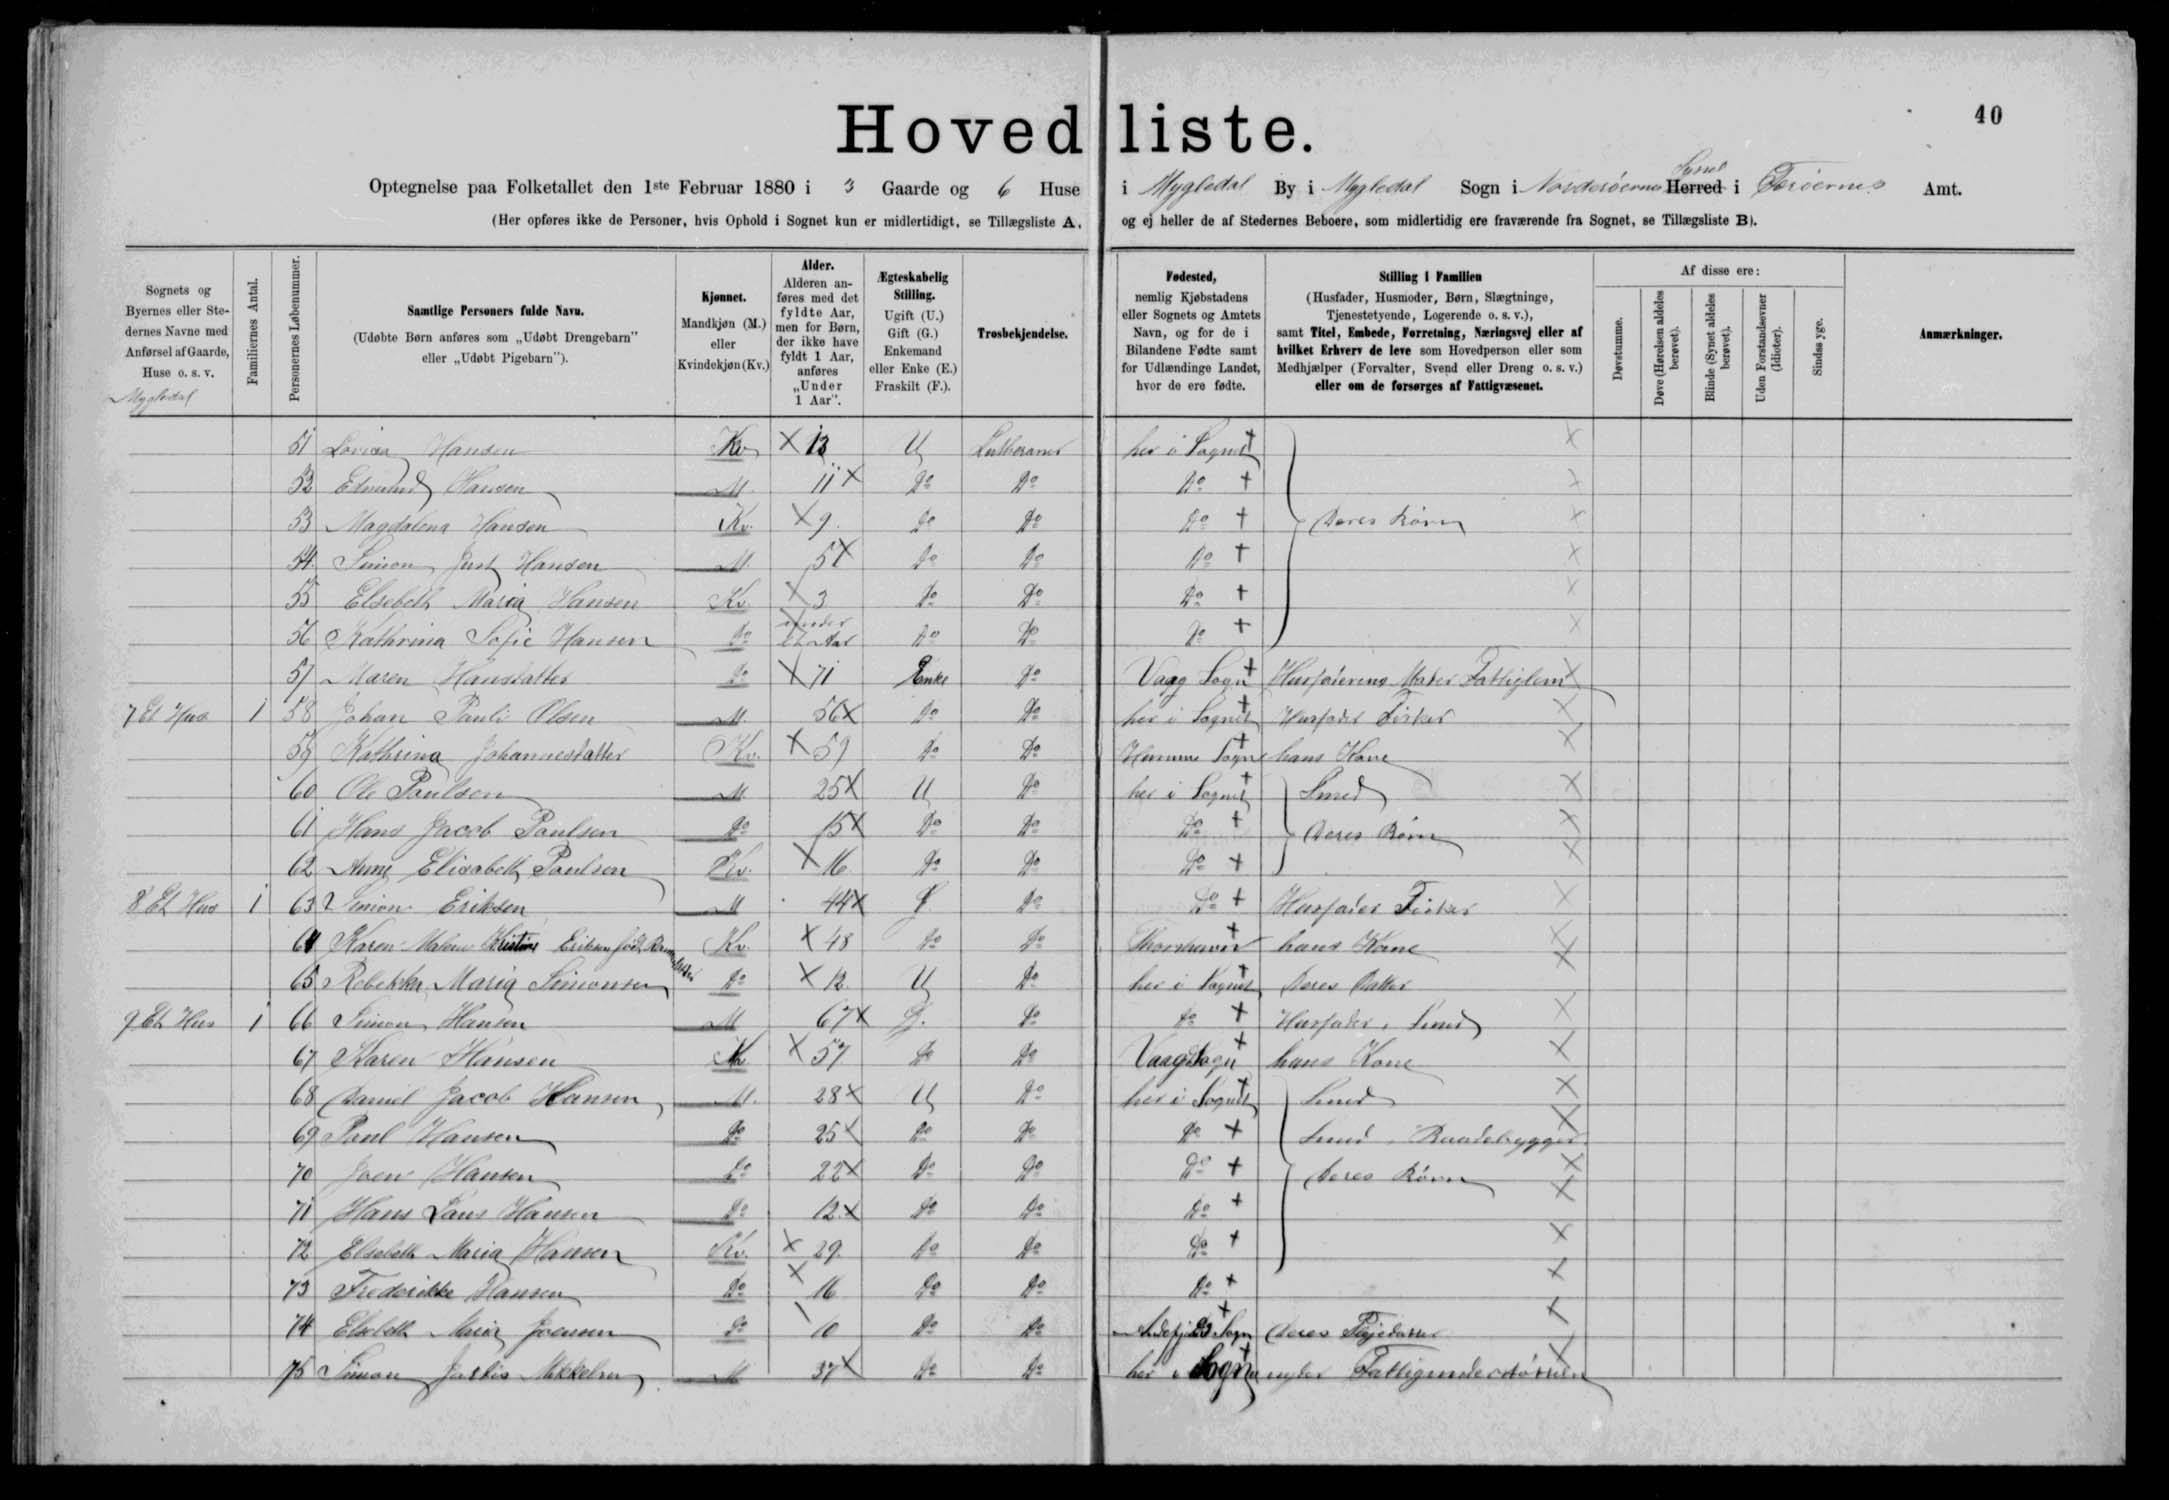 40
Hovedliste.
Optegnelse paa Folketallet den 1ste Februar 1880 i 3 Gaarde og 6 Huse i Mygledal By i Mygledal Sogn i Norderöernes Herred Syssel i Færöernes Amt.
(Her opføres ikke de Personer, hvis Ophold i Sognet kun er midlertidigt, se Tillægsliste A, og ej heller de af Stedernes Beboere, som midlertidig ere fraværende fra Sognet, se Tillægsliste B).
Sognets og Byernes eller Stedernes Navne med Anførsel af Gaarde, Huse o. s. v.
Familiernes Antal.
Personernes Løbenummer.
Samtlige Personers fulde Navn.
(Udøbte Børn anføres som „Udøbt Drengebarn" eller „Udøbt Pigebarn").
Kjønnet.
Mandkjøn (M.) eller Kvindekjøn (Kv.)
Alder.
Alderen anføres med det fyldte Aar, men for Børn, der ikke have fyldt 1 Aar, anføres „Under 1 Aar".
Ægteskabelig Stilling.
Ugift (U.) Gift (G.) Enkemand eller Enke (E.) Fraskilt (F.).
Trosbekjendelse.
Fødested,
nemlig Kjøbstadens eller Sognets og Amtets Navn, og for de i Bilandene Fødte samt for Udlændinge Landet, hvor de ere fødte.
Stilling i Familien
(Husfader, Husmoder, Børn, Slægtninge, Tjenestetyende, Logerende o. s. v.), samt Titel, Embede, Forretning, Næringsvej eller af hvilket Erhverv de leve som Hovedperson eller som Medhjælper (Forvalter, Svend eller Dreng o. s. v.) eller om de forsørges af Fattigvæsenet.
Af disse ere:
Døvstumme.
Døve (Hørelsen aldeles berøvet).
Blinde (Synet aldeles berøvet).
Uden Forstandsevner (Idioter).
Sindssyge.
Anmærkninger.
Mygledal
51 Lovisa Hansen Kv. X 13 U Lutheraner her i Sognet +
52 Edmund Hansen M. 11 X Do Do Do +
53 Magdalena Hansen Kv. X 9. Do Do Do + Deres Börn
54. Simon Just Hansen M. 5 X Do Do Do +
55 Elsebeth Maria Hansen Kv. X 3 Do Do Do +
56 Kathrina Sofie Hansen Do under et Aar Do Do Do +
57 Maren Hansdatter Do X 71 Enke Do Vaag Sogn + Husfaderens Moder Fattiglem
7 Et Hus 1 58 Johan Pauli Olsen M. 56 X Do Do her i Sognet + Husfader Fisker
59 Kathrina Johannesdatter Kv. X 59 Do Do Sogn + hans Kone
60 Ole Poulsen M 25 X U Do her i Sognet + Smed
61 Hans Jacob Poulsen Do 15 X Do Do Do + Deres Börn
62 Anne Elisabeth Poulsen Kv. X 16 Do Do Do +
8 Et Hus 1 63 Simon Eriksen M 44 X G Do Do + Husfader Fisker
64 Karen Malene Kristine Eriksen född Kv. X 48 Do Do Thorshavn + hans Kone
65 Rebekka Maria Simonsen Do X 12. U Do her i Sognet + Deres Datter
9 Et Hus 1 66 Simon Hansen M 67 X G. Do Do + Husfader, Smed
67 Karen Hansen Kv X 57 Do Do Vaag Sogn + hans Kone
68 Daniel Jacob Hansen M. 28 X U Do her i Sognet + Smed
69 Poul Hansen Do 25 X Do Do Do + Smed, Baadebygger
70 Joen Hansen Do 22 X Do Do Do + Deres Börn
71 Hans Hansen Do 12 X Do Do Do +
72 Elsebeth Maria Hansen Kv. X 29. Do Do Do +
73 Frederikke Hansen Do X 16 Do Do Do +
74 Elsebeth Maria Joensen Do 10 Do Do Sogn + Deres Plejedatter
75 Simon Mikkelsen M 37 X Do Do her i Sogn + nyder Fattigunderstöttelse